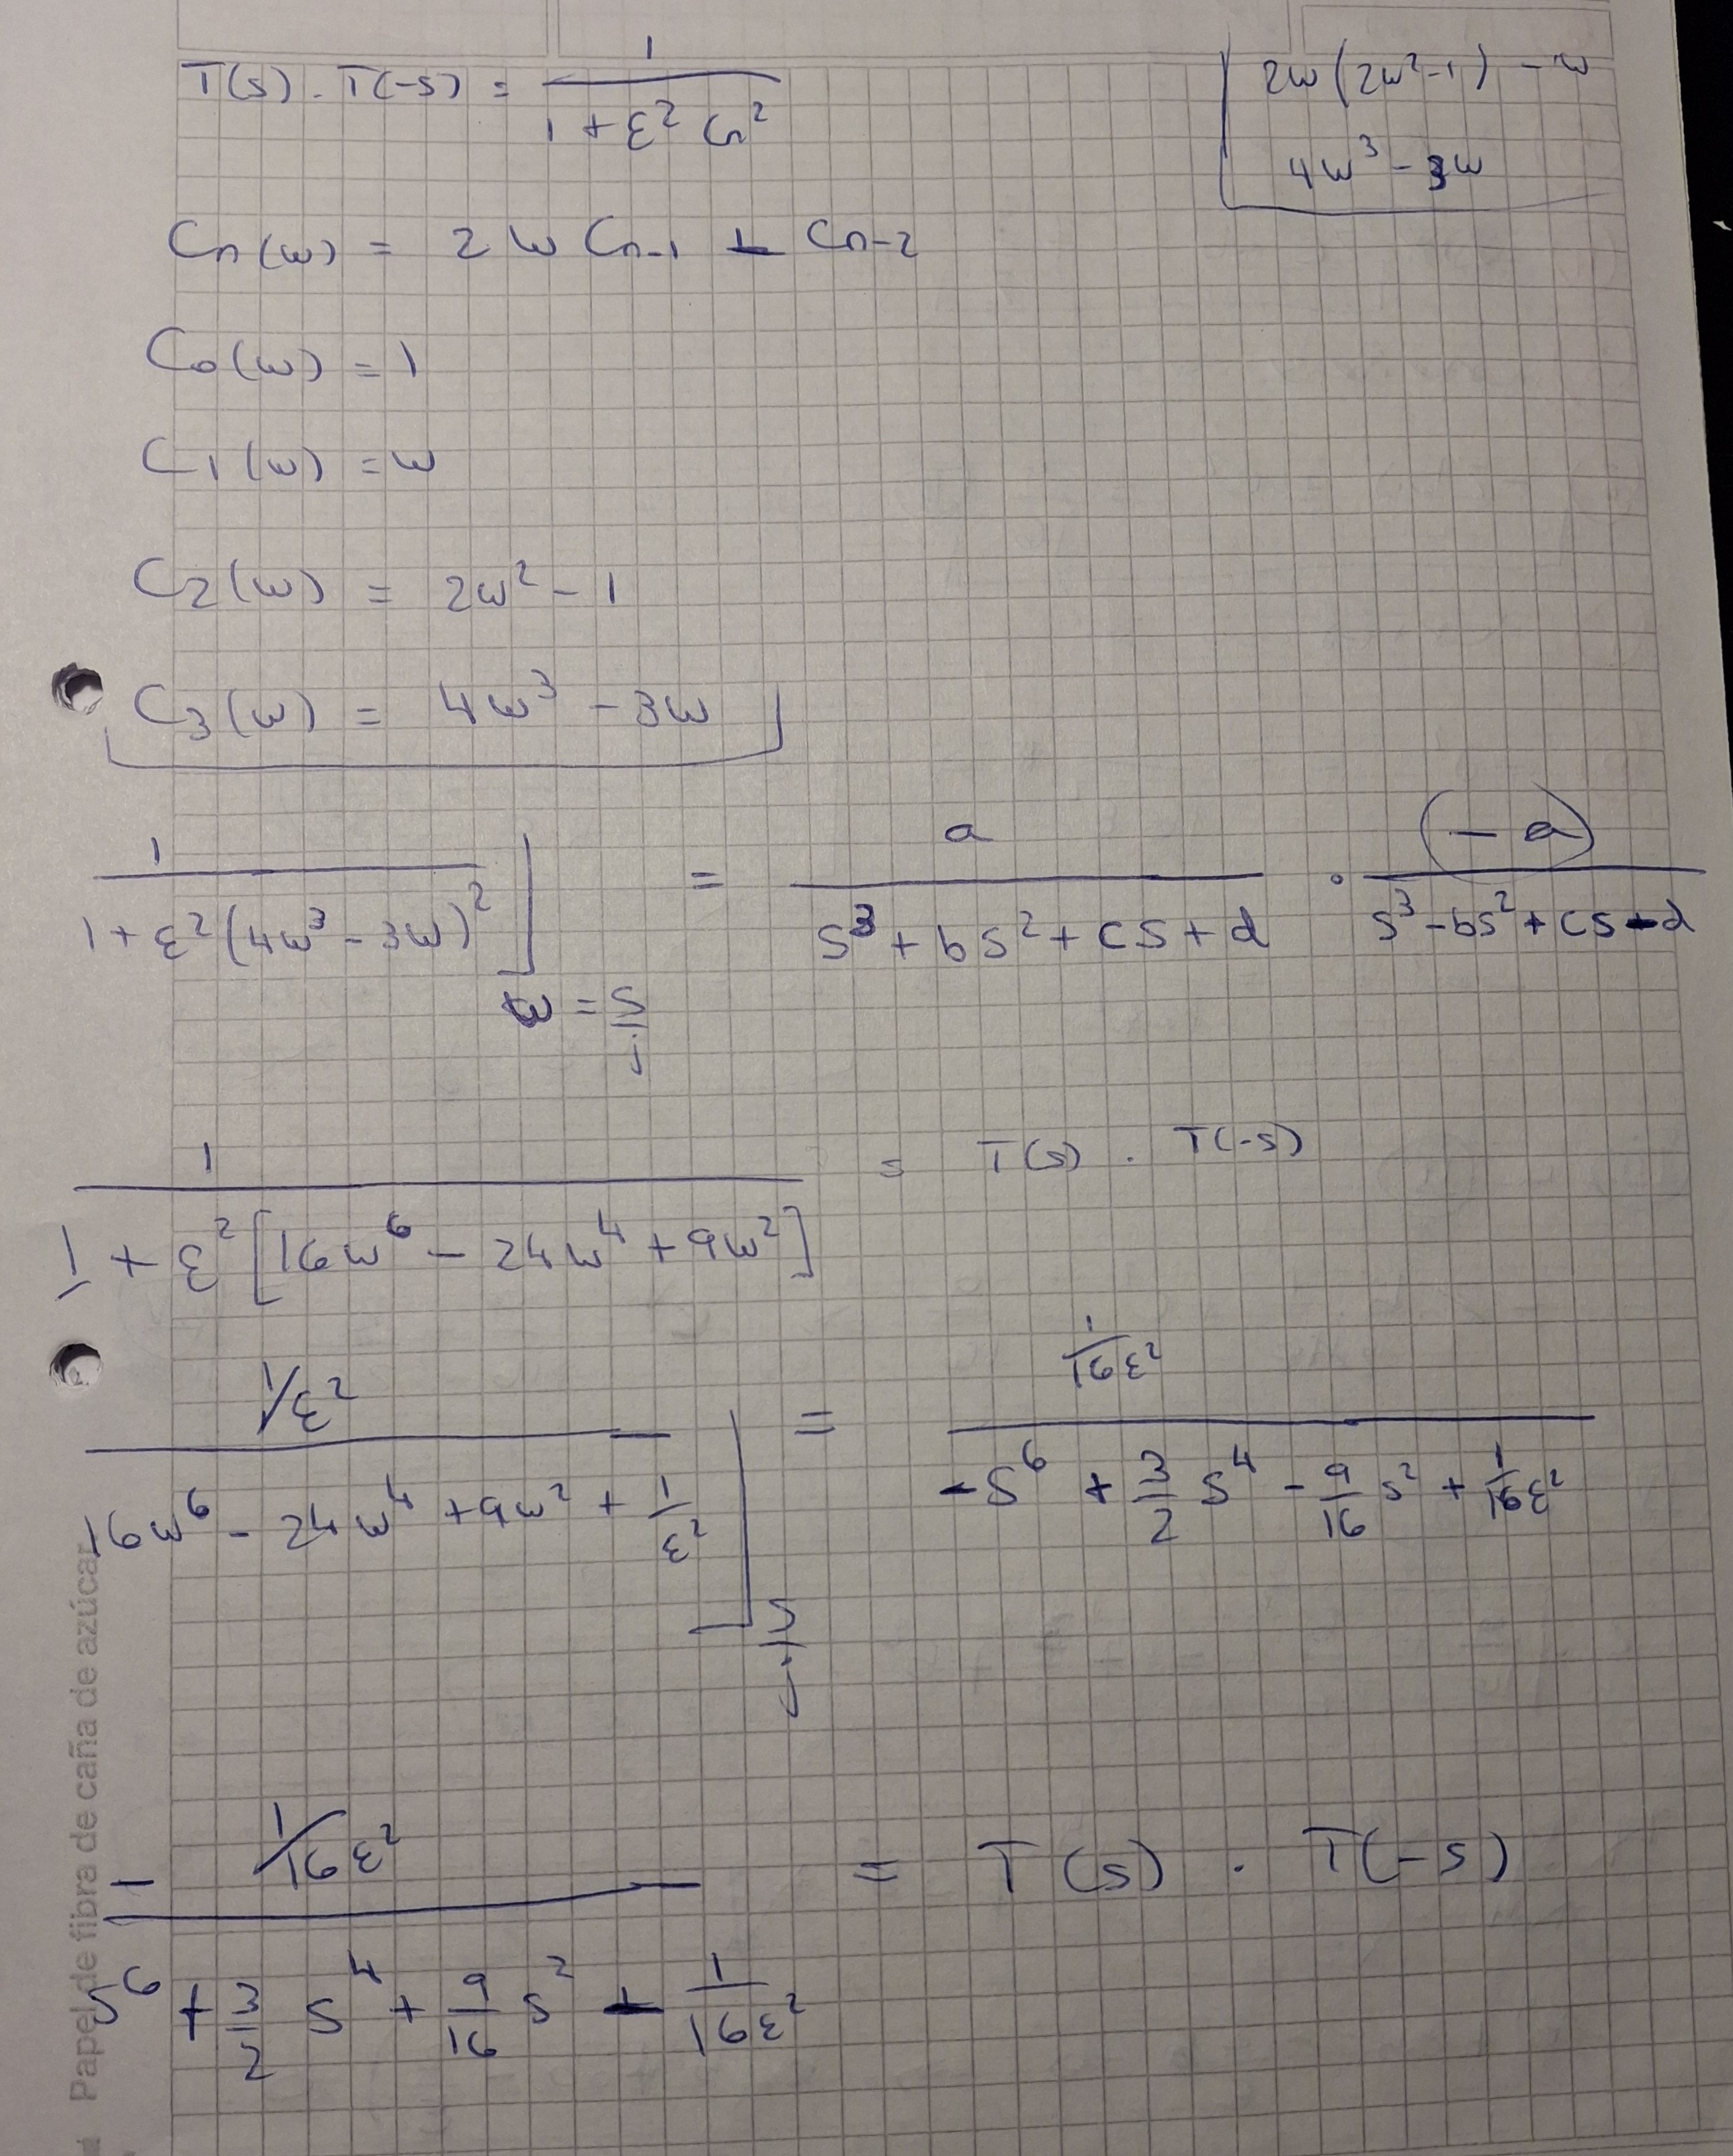 T(s) . T(-s) = 1 / (1 + ε² Cn²)
2ω(2ω²-1) - ω
4ω³ - 3ω
Cn(ω) = 2ω Cn-1 - Cn-2
C0(ω) = 1
C1(ω) = ω
C2(ω) = 2ω² - 1
C3(ω) = 4ω³ - 3ω
1 / (1 + ε²(4ω³ - 3ω)²) ] ω = s/j = a / (s³ + bs² + cs + d) . (-a) / (s³ - bs² + cs - d)
1 / (1 + ε²[16ω⁶ - 24ω⁴ + 9ω²]) = T(s) . T(-s)
(1/ε²) / (16ω⁶ - 24ω⁴ + 9ω² + 1/ε²) ] s/j = (1/16ε²) / (-s⁶ + 3/2 s⁴ - 9/16 s² + 1/16ε²)
- (1/16ε²) / (s⁶ + 3/2 s⁴ + 9/16 s² - 1/16ε²) = T(s) . T(-s)
Papel de fibra de caña de azúcar